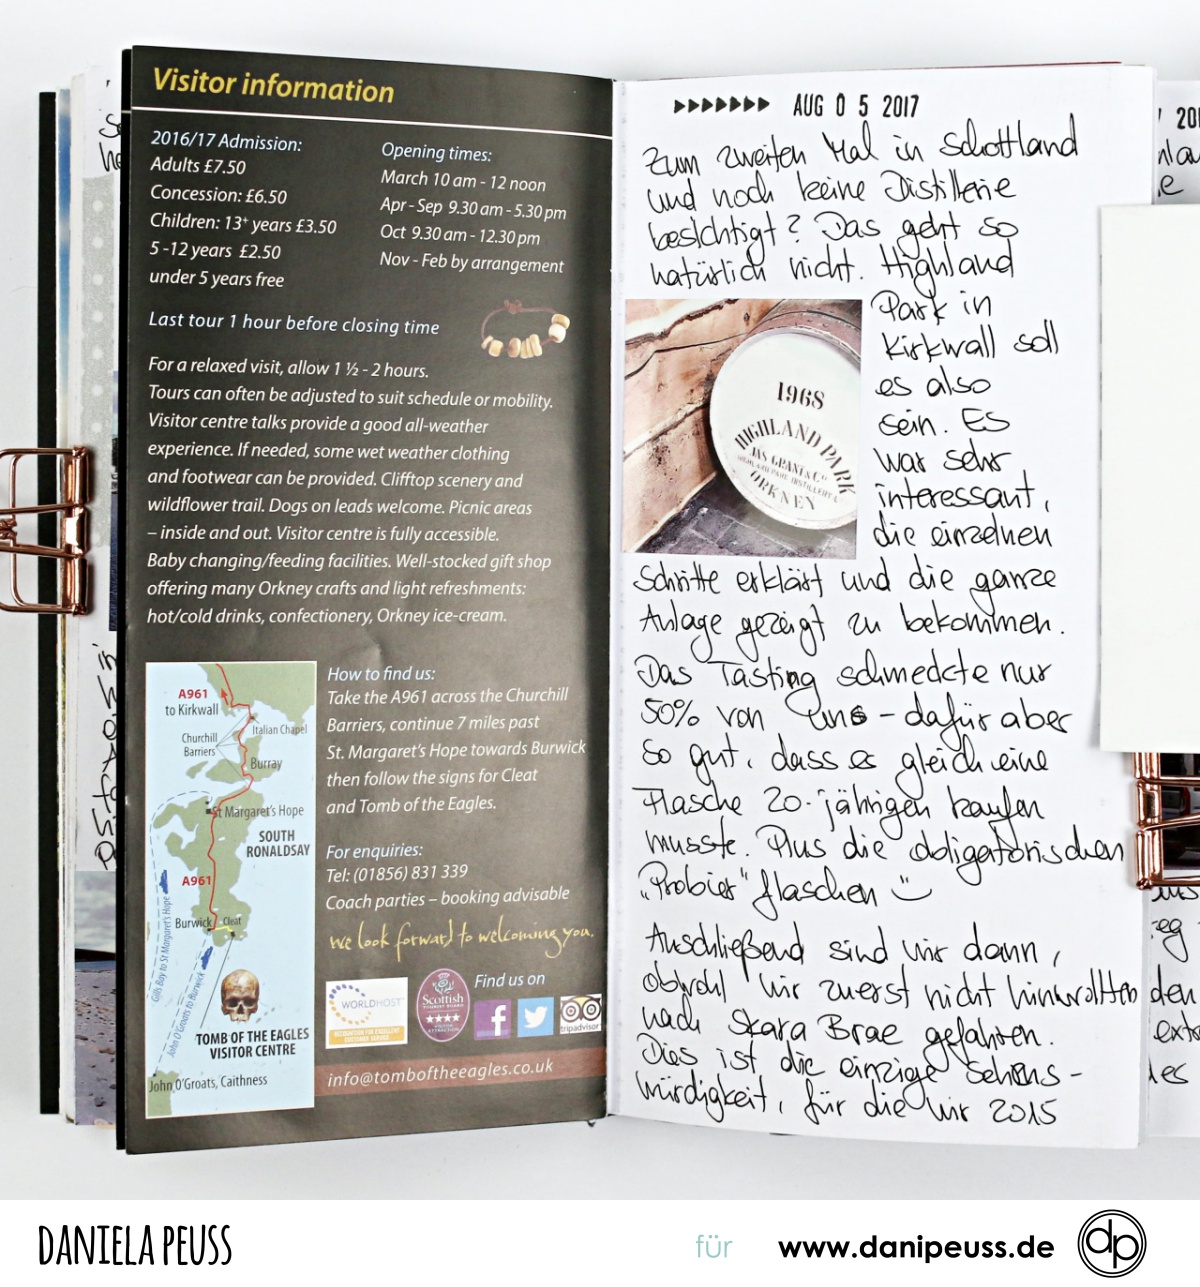 Visitor information
2016/17 Admission:
Adults £7.50
Concession: £6.50
Children: 13+ years £3.50
5 -12 years £2.50
under 5 years free
Opening times:
March 10 am - 12 noon
Apr - Sep 9.30 am - 5.30 pm
Oct 9.30 am - 12.30 pm
Nov - Feb by arrangement
Last tour 1 hour before closing time
For a relaxed visit, allow 1 ½ - 2 hours.
Tours can often be adjusted to suit schedule or mobility.
Visitor centre talks provide a good all-weather
experience. If needed, some wet weather clothing
and footwear can be provided. Clifftop scenery and
wildflower trail. Dogs on leads welcome. Picnic areas
– inside and out. Visitor centre is fully accessible.
Baby changing/feeding facilities. Well-stocked gift shop
offering many Orkney crafts and light refreshments:
hot/cold drinks, confectionery, Orkney ice-cream.
A961
to Kirkwall
Italian Chapel
Churchill
Barriers
Burray
St Margaret's Hope
SOUTH
RONALDSAY
A961
Burwick
Cleat
Gills Bay to St Margaret's Hope
John O'Groats to Burwick
TOMB OF THE EAGLES
VISITOR CENTRE
John O'Groats, Caithness
How to find us:
Take the A961 across the Churchill
Barriers, continue 7 miles past
St. Margaret's Hope towards Burwick
then follow the signs for Cleat
and Tomb of the Eagles.
For enquiries:
Tel: (01856) 831 339
Coach parties – booking advisable
We look forward to welcoming you.
WORLDHOST
RECOGNITION FOR EXCELLENT
CUSTOMER SERVICE
Scottish
TOURIST BOARD
★★★★
VISITOR
ATTRACTION
Find us on
f
tripadvisor
info@tomboftheeagles.co.uk
AUG 0 5 2017
Zum zweiten Mal in Schottland
und noch keine Distillerie
besichtigt? Das geht so
natürlich nicht. Highland
Park in
Kirkwall soll
es also
sein. Es
war sehr
interessant,
die einzelnen
Schritte erklärt und die ganze
Anlage gezeigt zu bekommen.
Das Tasting schmeckte nur
50% von uns – dafür aber
so gut, dass es gleich eine
Flasche 20-jährigen kaufen
musste. Plus die obligatorischen
„Probier"flaschen
Anschließend sind wir dann,
obwohl wir zuerst nicht hinwollten
nach Skara Brae gefahren.
Dies ist die einzige Sehens-
würdigkeit, für die wir 2015
1968
HIGHLAND PARK
JAS GRANT & Co
HIGHLAND PARK DISTILLERY
ORKNEY
den
extr
DANIELA PEUSS
für
www.danipeuss.de
dp